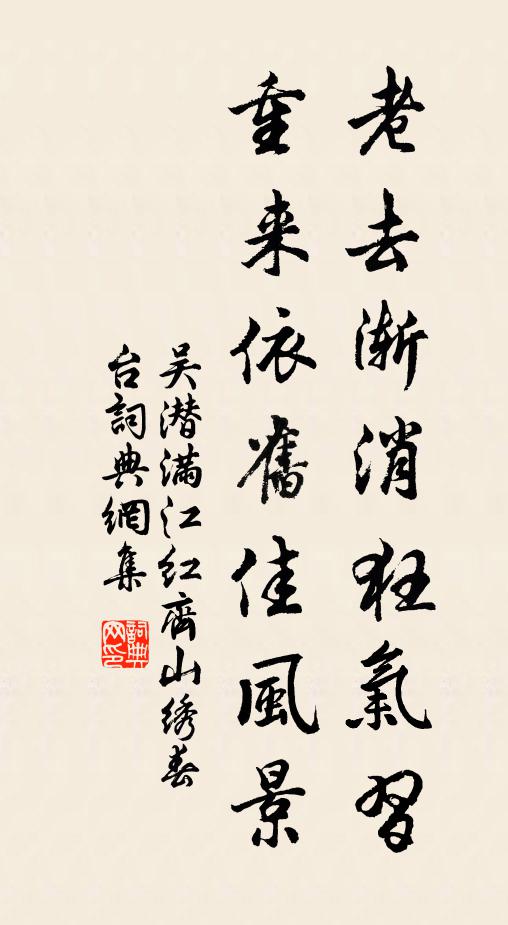 老去渐消狂氣習
重来依舊佳風景
吴潜满江红齊山绣春
台詞典網集
詞典
网印